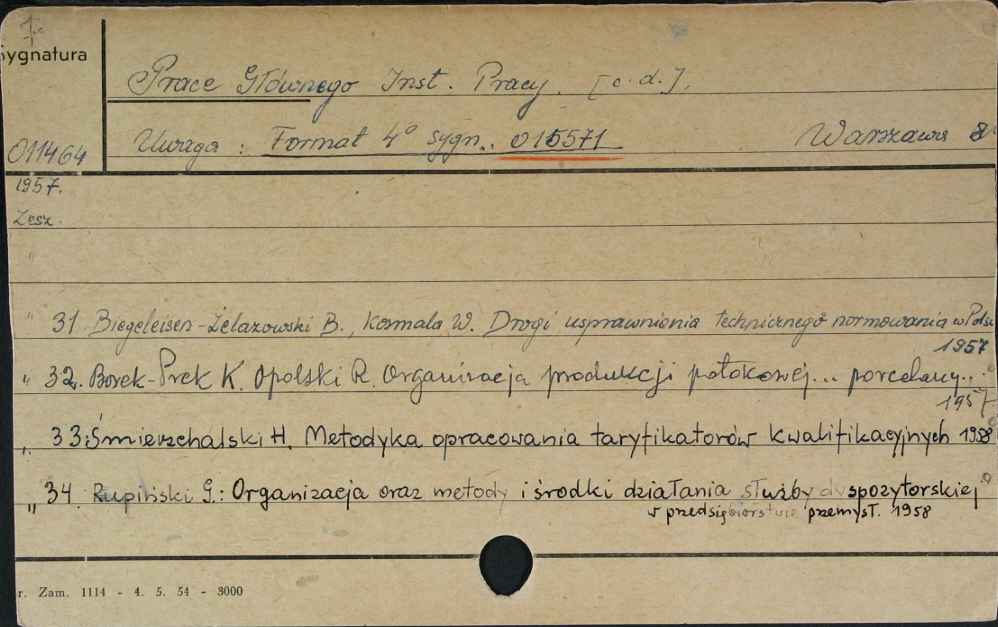 Sygnatura
Prace Głównego Inst. Pracy. [c.d.].
011464 Uwaga: Format 4° sygn. 015571 Warszawa 8°
1957.
Zesz.
"
" 31. Biegeleisen-Żelazowski B., Kosmala W. Drogi usprawnienia technicznego normowania w Polsce
1957
" 32. Borek-Prek K. Opolski R. Organizacja produkcji potokowej... porcelany...
1957
" 33. Śmierzchalski H. Metodyka opracowania taryfikatorów kwalifikacyjnych 1958
" 34. Rupiński G.: Organizacja oraz metody i środki działania służby dyspozytorskiej
w przedsiębiorstwie przemysł. 1958
r. Zam. 1114 - 4. 5. 54 - 3000